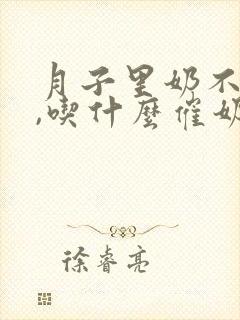 月子里奶不
,喫什麼催奶
徐睿亮